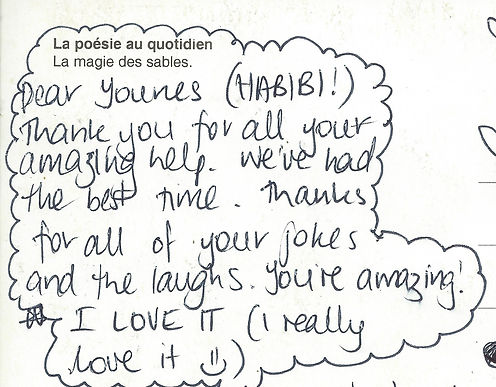 La poésie au quotidien
La magie des sables.
Dear Younes (HABIBI!)
Thank you for all your
amazing help. We've had
the best time. Thanks
for all of your jokes
and the laughs. You're amazing!
I LOVE IT (I really
love it :))